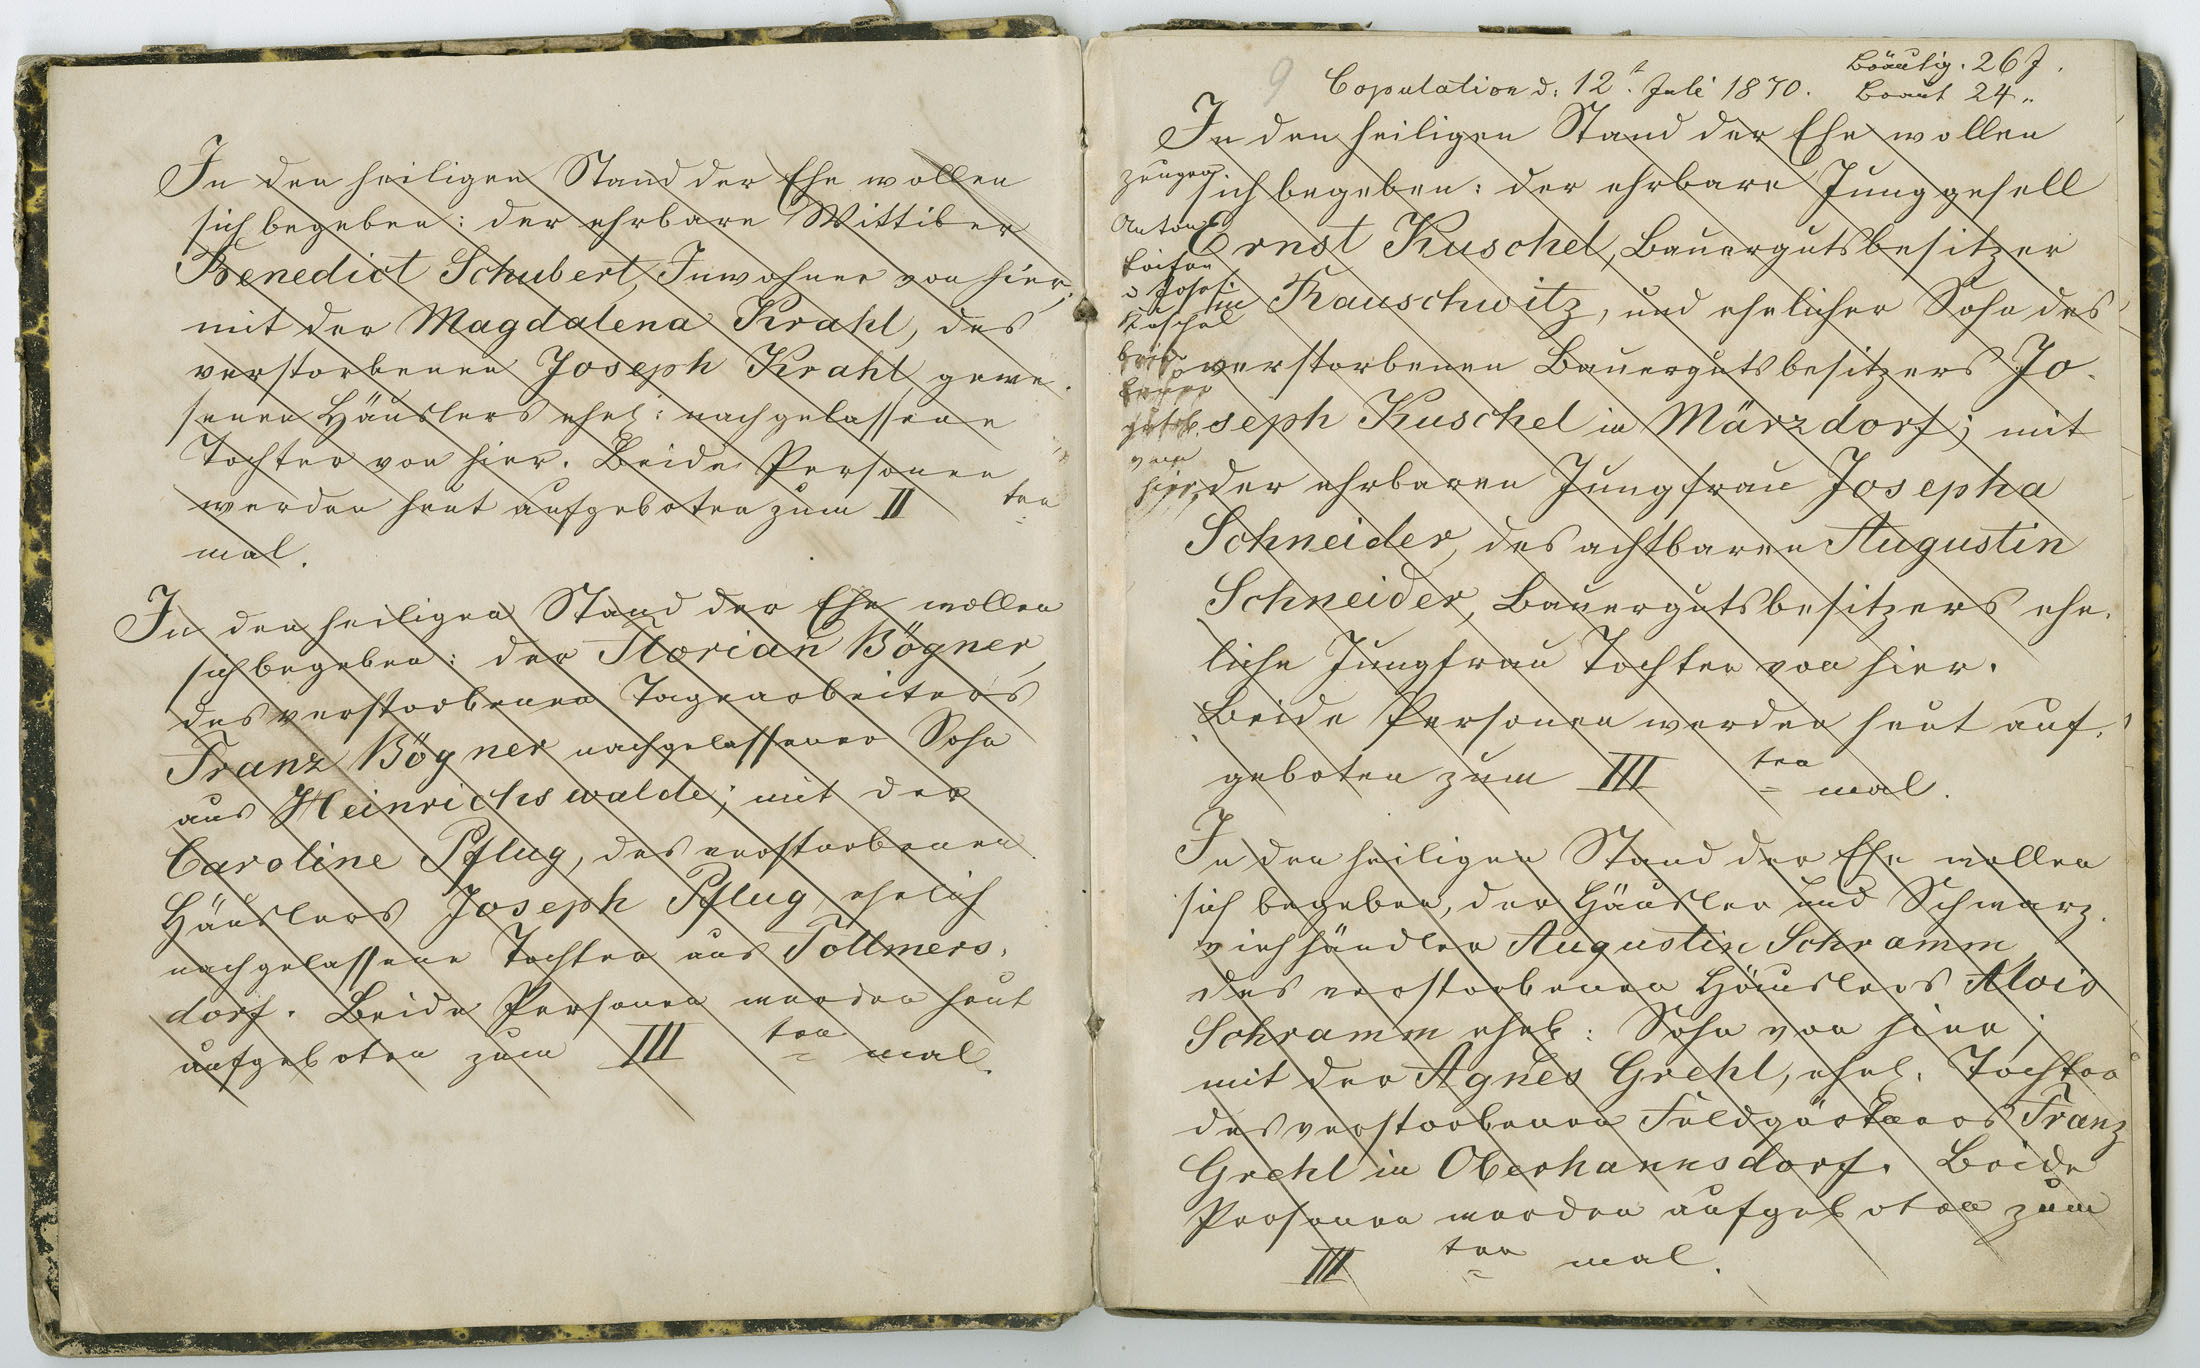 In den heiligen Stand der Ehe wollen
sich begeben: der ehrbare Wittiber
Benedict Schubert, Inwohner von hier,
mit der Magdalena Krahl, des
verstorbenen Joseph Krahl gewe-
senen Häuslers ehel: nachgelassene
Tochter von hier. Beide Personen
werden heut aufgeboten zum II ten
mal.
In den heiligen Stand der Ehe wollen
sich begeben: der Florian Bögner,
des verstorbenen Tagearbeiters
Franz Bögner nachgelassener Sohn
aus Heinrichswalde; mit der
Caroline Pflug, des verstorbenen
Häuslers Joseph Pflug, ehelich
nachgelassene Tochter aus Follmers-
dorf. Beide Personen werden heut
aufgeboten zum III ten mal.
9
Copulation d: 12t. Juli 1870.
Bräutig. 26 J.
Braut 24 "
In den heiligen Stand der Ehe wollen
sich begeben: der ehrbare Junggesell
Ernst Kuschel, Bauergutsbesitzer
in Rauschwitz, und ehelicher Sohn des
verstorbenen Bauergutsbesitzers Jo-
seph Kuschel in Märzdorf; mit
der ehrbaren Jungfrau Josepha
Schneider, des achtbaren Augustin
Schneider, Bauergutsbesitzers ehe-
liche Jungfrau Tochter von hier.
Beide Personen werden heut auf-
geboten zum III ten mal.
Zeugen
Anton
u Josef
Kuschel
beide
von
hier.
In den heiligen Stand der Ehe wollen
sich begeben, der Häusler und Schwarz-
viehhändler Augustin Schramm,
des verstorbenen Häuslers Alois
Schramm ehel: Sohn von hier;
mit der Agnes Grehl, ehel. Tochter
des verstorbenen Feldgärtners Franz
Grehl in Oberhannsdorf. Beide
Personen werden aufgeboten zum
III ten mal.